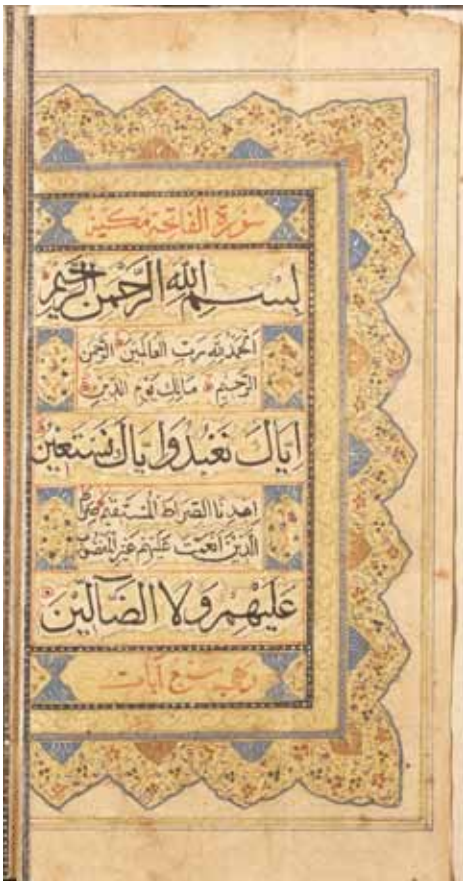 سورة الفاتحة مكية
بِسْمِ اللهِ الرَّحْمٰنِ الرَّحِيْمِ
اَلْحَمْدُ لِلّٰهِ رَبِّ الْعَالَمِيْنَ الرَّحْمٰنِ
الرَّحِيْمِ مَالِكِ يَوْمِ الدِّيْنِ
اِيَّاكَ نَعْبُدُ وَاِيَّاكَ نَسْتَعِيْنُ
اِهْدِنَا الصِّرَاطَ الْمُسْتَقِيْمَ صِرَاطَ
الَّذِيْنَ اَنْعَمْتَ عَلَيْهِمْ غَيْرِ الْمَغْضُوْبِ
عَلَيْهِمْ وَلَا الضَّآلِّيْنَ
وهي سبع آيات